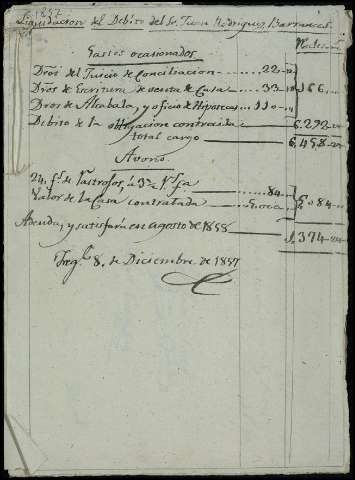 1857
Liquidacion del Debito del Sr. Juan Rodriguez Barruecos
Gastos ocasionados
Dros. del Juicio de Conciliacion 22
Dros de Escritura de venta de Casa 33 166
Dros de Alcabala, y oficio de Hipotecas 110
Debito de la obligacion contraida 6.292
total cargo 6.458
Abono
24. fs. de Rastrojos, á 3½ fa 84
Valor de la Casa contratada 5.000 5.084
Adeuda, y satisfará en agosto de 1858 1.374
8. de Diciembre de 1857